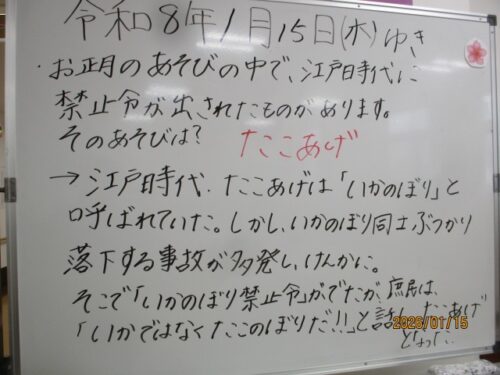 令和8年1月15日(木)ゆき
・お正月のあそびの中で、江戸時代に
禁止令が出されたものがあります。
そのあそびは?　たこあげ
→江戸時代.たこあげは「いかのぼり」と
呼ばれていた。しかし、いかのぼり同士ぶつかり
落下する事故が多発し、けんかに。
そこで「いかのぼり禁止令」がでたが、庶民は、
「いかではなくたこのぼりだ!!」と話し、たこあげ
となった…
2026/01/15